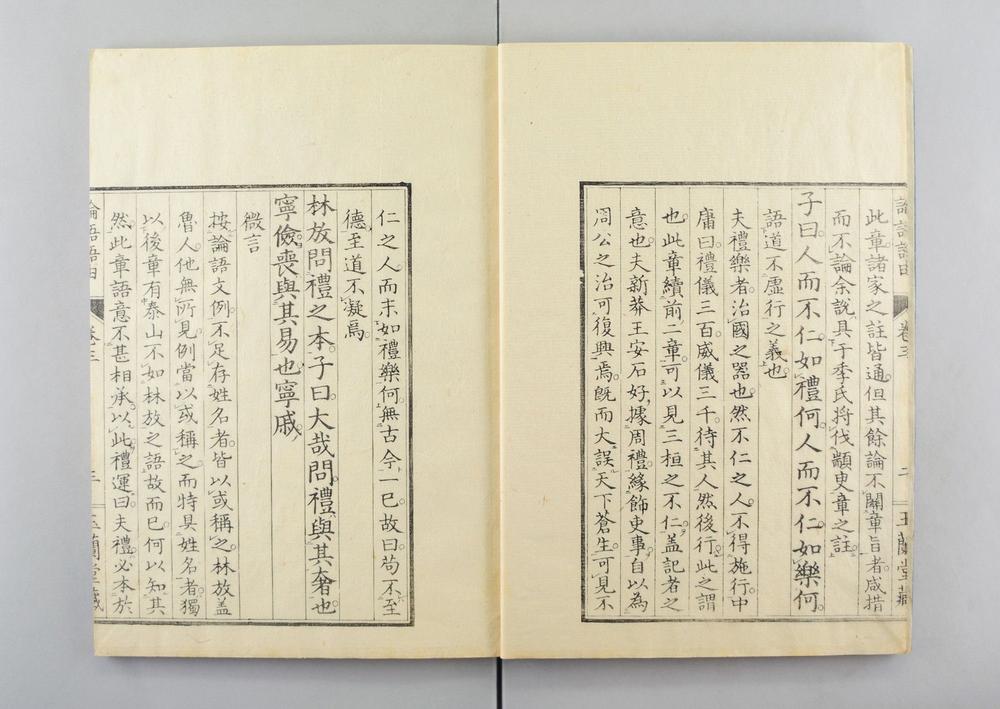 論語語由
卷三
二
玉蘭堂藏
此章諸家之註皆通但其餘論不關章旨者咸措
而不論余說具于季氏將伐顓臾章之註
子曰人而不仁如禮何人而不仁如樂何
語道不虛行之義也
夫禮樂者治國之器也然不仁之人不得施行中
庸曰禮儀三百威儀三千待其人然後行此之謂
也此章續前二章可以見三桓之不仁蓋記者之
意也夫新莽王安石好據周禮緣飾吏事自以為
周公之治可復興焉既而大誤天下蒼生可見不
仁之人而末如禮樂何無古今一已故曰苟不至
德至道不凝焉
林放問禮之本子曰大哉問禮與其奢也
寧儉喪與其易也寧戚
微言
按論語文例不足存姓名者皆以或稱之林放蓋
魯人他無所見例當以或稱之而特具姓名者獨
以後章有泰山不如林放之語故而已何以知其
然此章語意不甚相承以此禮運曰夫禮必本於
論語語由
卷三
三
玉蘭堂藏